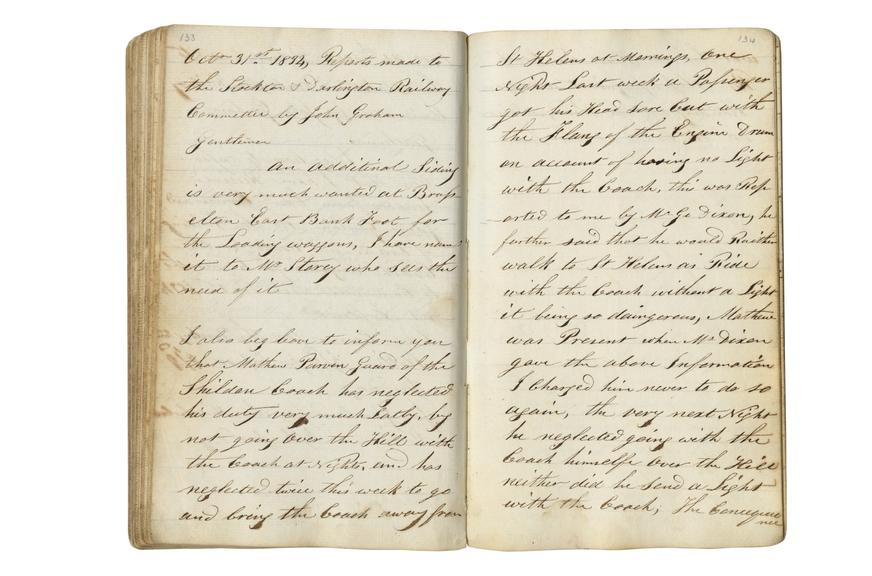 133
Octr 31st 1834, Reports made to
the Stockton & Darlington Railway
Committee by John Graham
Gentlemen
An additinal Siding
is very much wanted at Brass
elton East Bank Foot for
the Loading waggons, I have named
it to Mr Storey who sees the
need of it
I also beg leave to inform you
that Mathew Purven Guard of the
Shildon Coach has neglected
his duty very much Latly, by
not going Over the Hill with
the Coach at Nights, and has
neglected twice this week to go
and bring the Coach away from
134
St Helens at Mornings, One
Night Last week a Passenger
got his Head sore Cut with
the Flang of the Engine Drum
on account of having no Light
with the Coach, this was Rep
orted to me by Mr Ge Dixon, he
further said that he would Raither
walk to St Helens as Ride
with the Coach without a Light
it being so daingerous, Mathew
was Present when Mr Dixon
gave the above Information
I Charged him never to do so
again, the very next Night
he neglected going with the
Coach himselfe Over the Hill
neither did he send a Light
with the Coach; The Consequee
nce